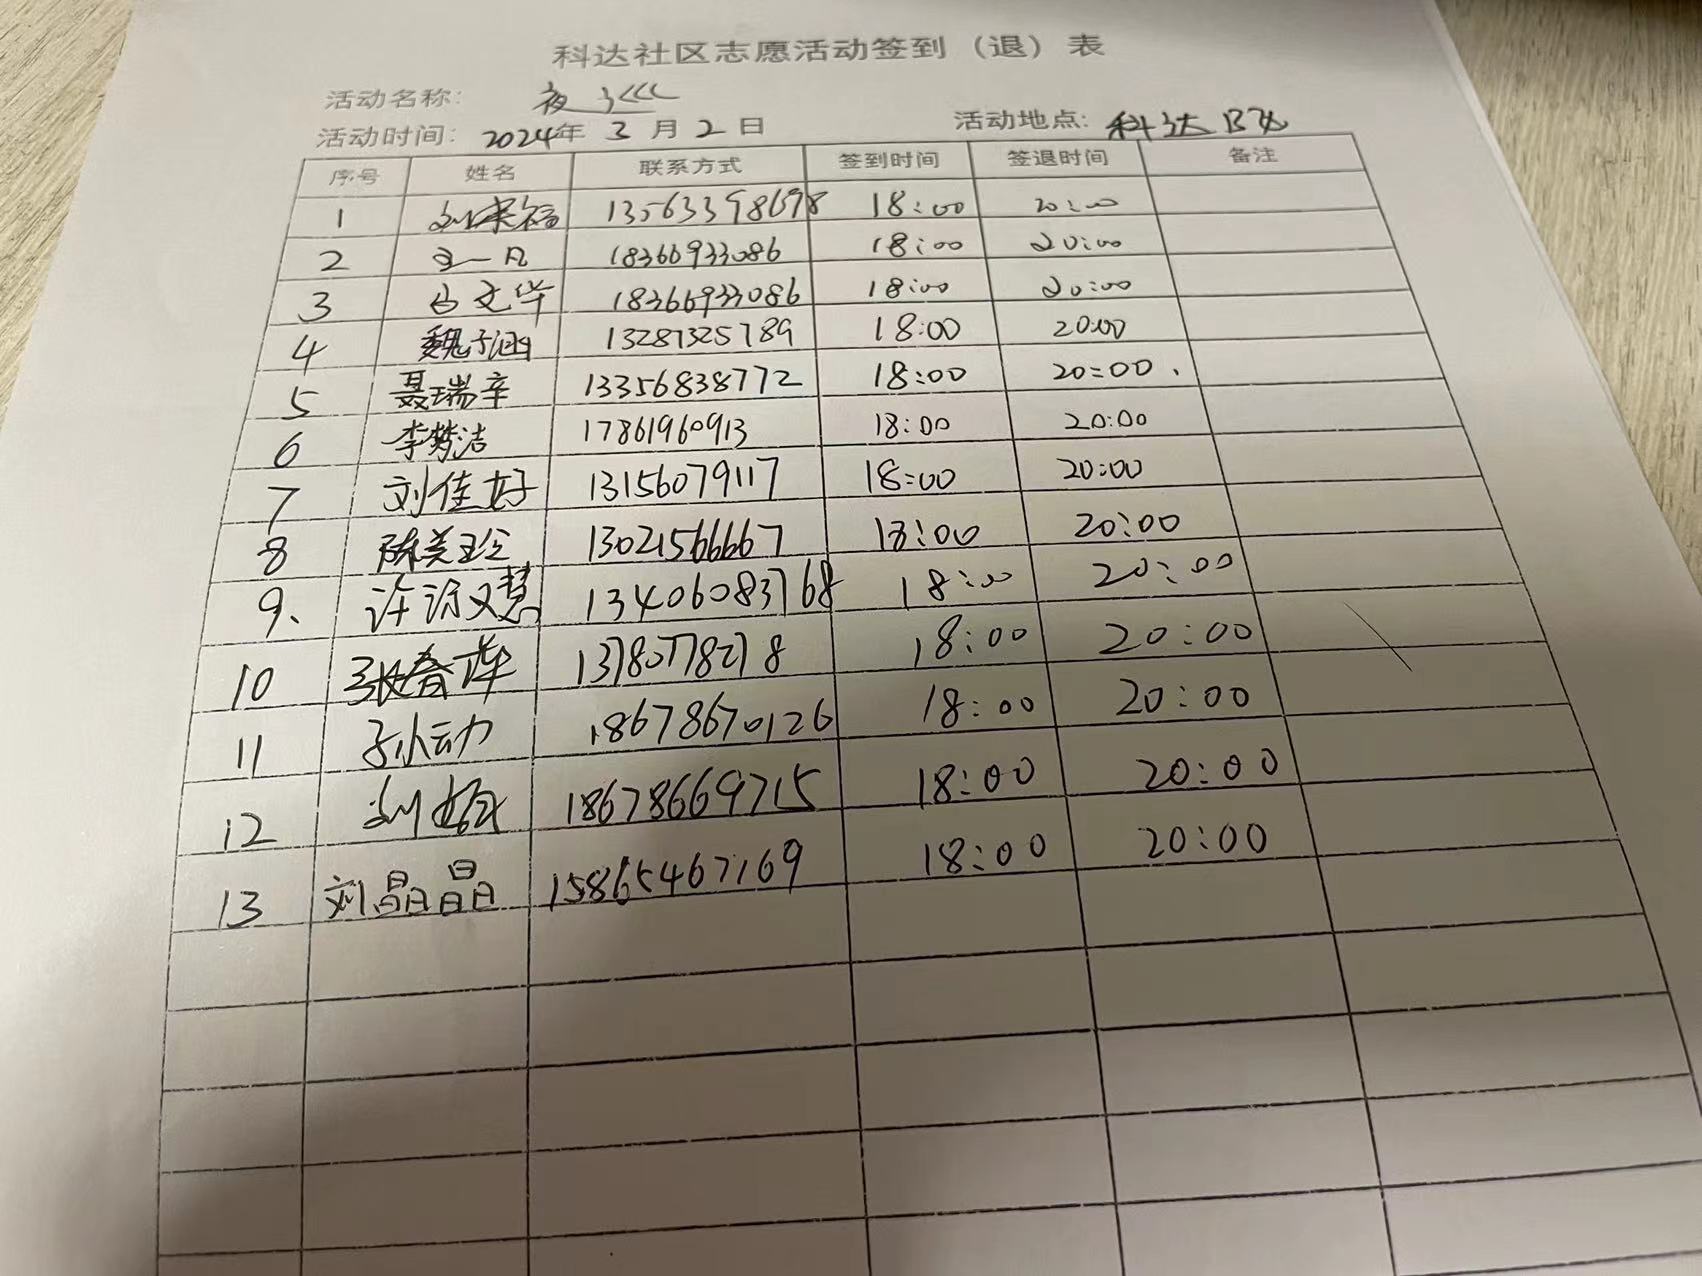 科达社区志愿活动签到（退）表
活动名称： 夜
活动时间：2024年 3 月 2 日 活动地点：科达 B区
序号 姓名 联系方式 签到时间 签退时间 备注
1 13563398698 18:00 20:00
2 王一凡 18366933086 18:00 20:00
3 白文华 18366933086 18:00 20:00
4 魏子涵 13287325789 18:00 20:00
5 聂瑞辛 13356838772 18:00 20:00
6 李梦洁 17861960913 18:00 20:00
7 刘佳好 13156079117 18:00 20:00
8 陈美珍 13021566667 18:00 20:00
9、 许 慧 13406083768 18:00 20:00
10 张春萍 13780778278 18:00 20:00
11 孙云力 18678670126 18:00 20:00
12 刘 18678669715 18:00 20:00
13 刘晶晶 15865467169 18:00 20:00